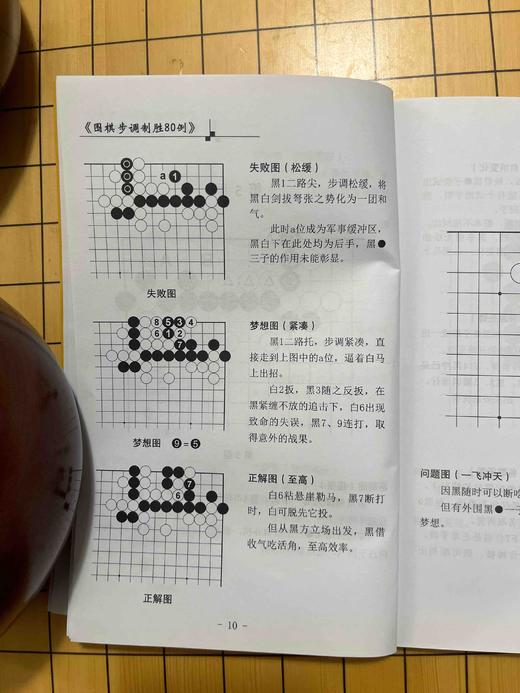 《围棋步调制胜80例》
a 1
失败图
失败图（松缓）
黑1二路尖，步调松缓，将
黑白剑拔弩张之势化为一团和
气。
此时a位成为军事缓冲区，
黑白下在此处均为后手，黑●
三子的作用未能彰显。
8 5 3 4
6 1 2
7
梦想图 9=5
梦想图（紧凑）
黑1二路托，步调紧凑，直
接走到上图中的a位，逼着白马
上出招。
白2扳，黑3随之反扳，在
黑紧缠不放的追击下，白6出现
致命的失误，黑7、9连打，取
得意外的战果。
7
6
正解图
正解图（至高）
白6粘悬崖勒马，黑7断打
时，白可脱先它投。
但从黑方立场出发，黑借
收气吃活角，至高效率。
- 10 -
问题图（一飞冲天）
因黑随时可以断吃
但有外围黑●一子
梦想。